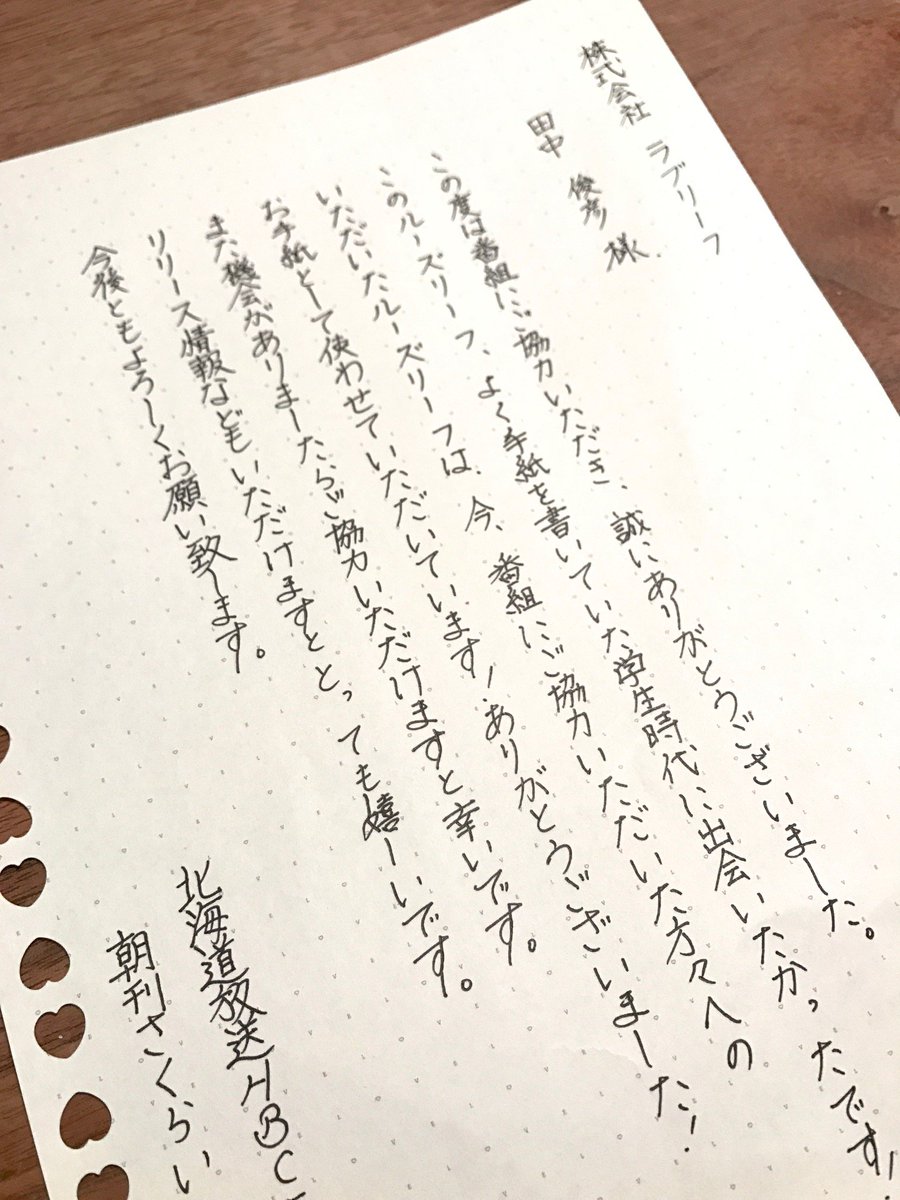 株式会社 ラブリーフ
田中 俊彦 様
この度は番組にご協力いただき、誠にありがとうございました。
このルーズリーフ、よく手紙を書いていた学生時代に出会いたかったです！
いただいたルーズリーフは、今、番組にご協力いただいた方々への
お手紙として使わせていただいています！ありがとうございました！
また機会がありましたらご協力いただけますと幸いです。
リリース情報などもいただけますととっても嬉しいです。
今後ともよろしくお願い致します。
北海道放送HBC
朝刊さくらい